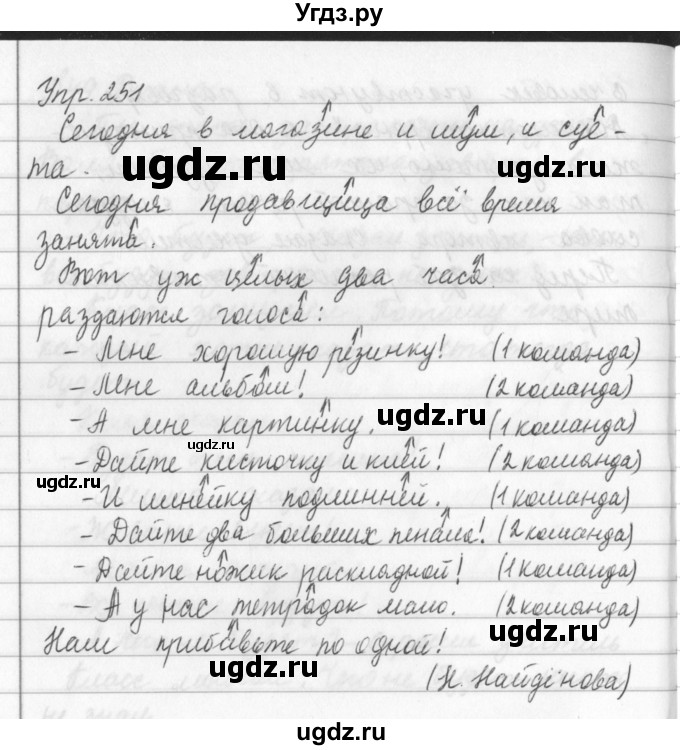 Угдз.ру
Упр. 251
Сегодня в магазине и шум, и суе-
та.
ugdz.ru
ugdz.ru
Сегодня продавщица всё время
занята.
Вот уж целых два часа
ugdz.ru
раздаются голоса:
– Мне хорошую резинку! (1 команда)
– Мне альбом! (2 команда)
– А мне картинку. (1 команда)
ugdz.ru
ugdz.ru
– Дайте кисточку и клей! (2 команда)
ugdz.ru
– И линейку подлинней. (1 команда)
– Дайте два больших пенала! (2 команда)
ugdz.ru
– Дайте ножик раскладной! (1 команда)
– А у нас тетрадок мало. (2 команда)
Нам прибавьте по одной!
ugdz.ru
ugdz.ru
(Н. Найдёнова)
ugdz.ru